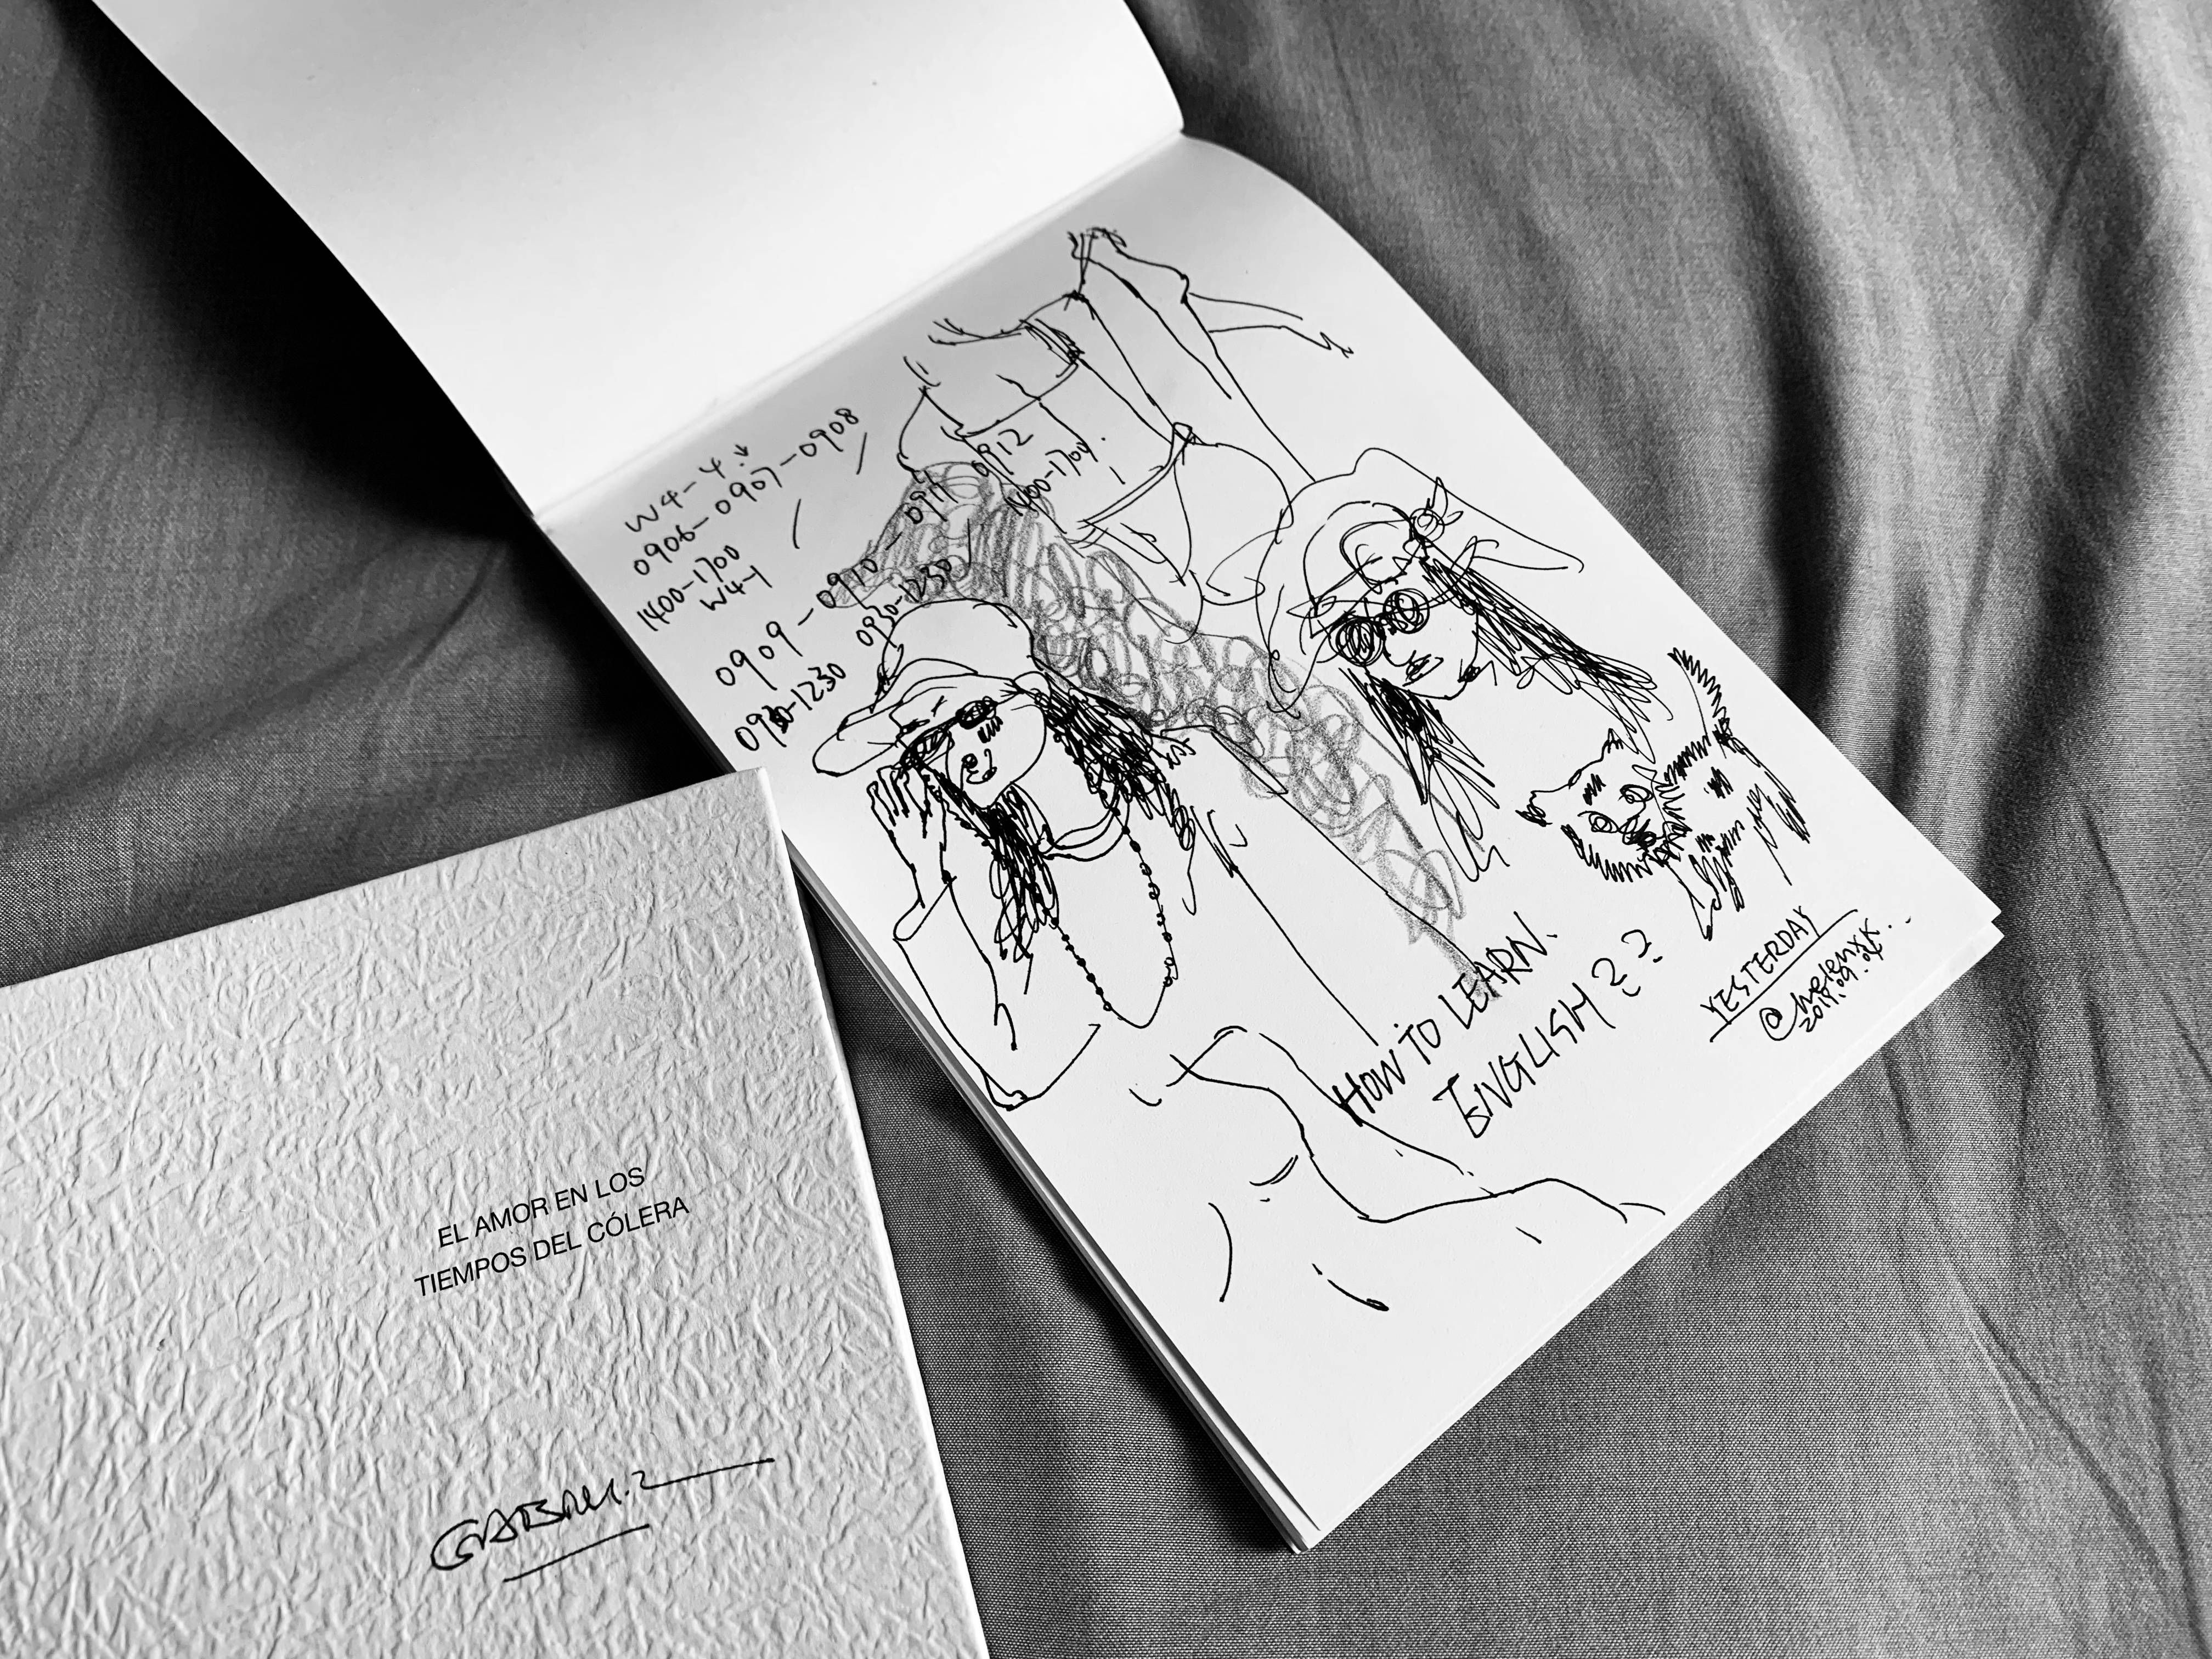 W4-4 ↓
0906-0907-0908
1400-1700
W4-1
0909-0910-0911-0912
0930-1230 0930-1230 1400-1700
HOW TO LEARN.
ENGLISH ? ?
YESTERDAY
EL AMOR EN LOS
TIEMPOS DEL CÓLERA